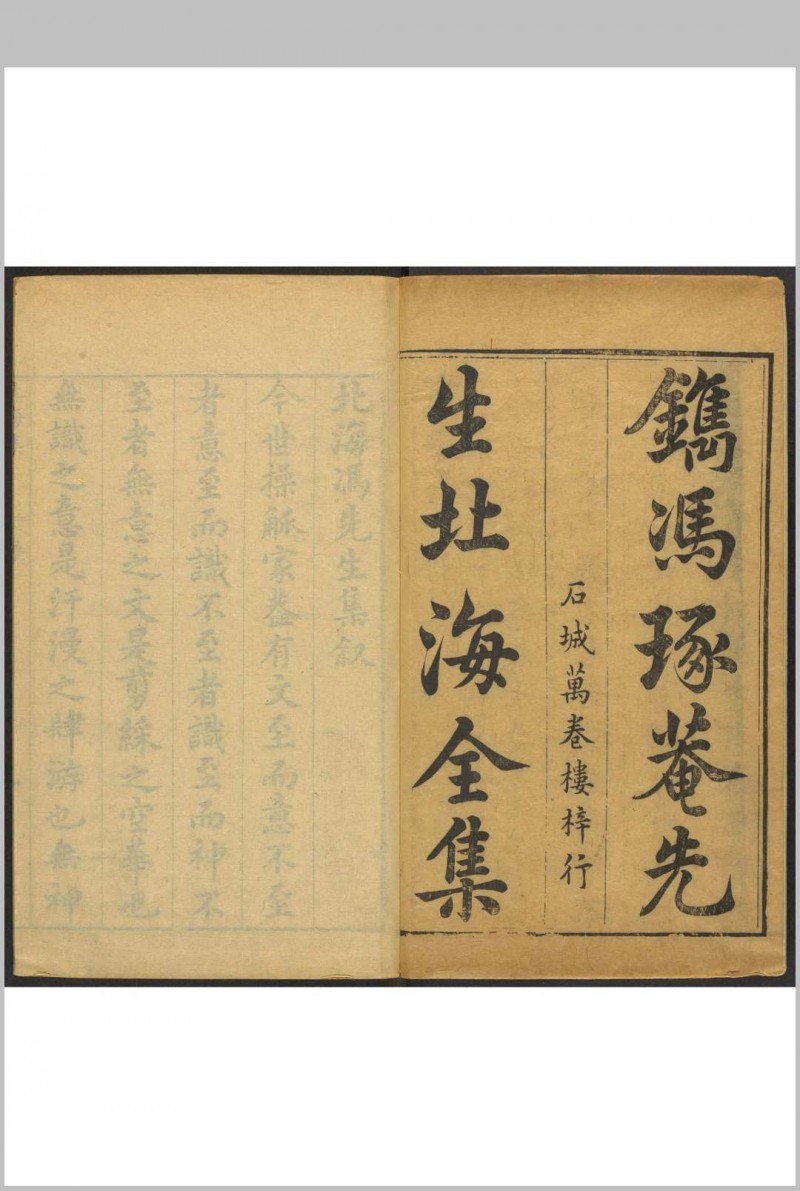 鐫馮琢菴先
石城萬卷樓梓行
生北海全集
北海馮先生集叙
今世操觚家葢有文至而意不至
者意至而識不至者識至而神不
至者無意之文是剪綵之空華也
無識之意是汗漫之肆游也無神